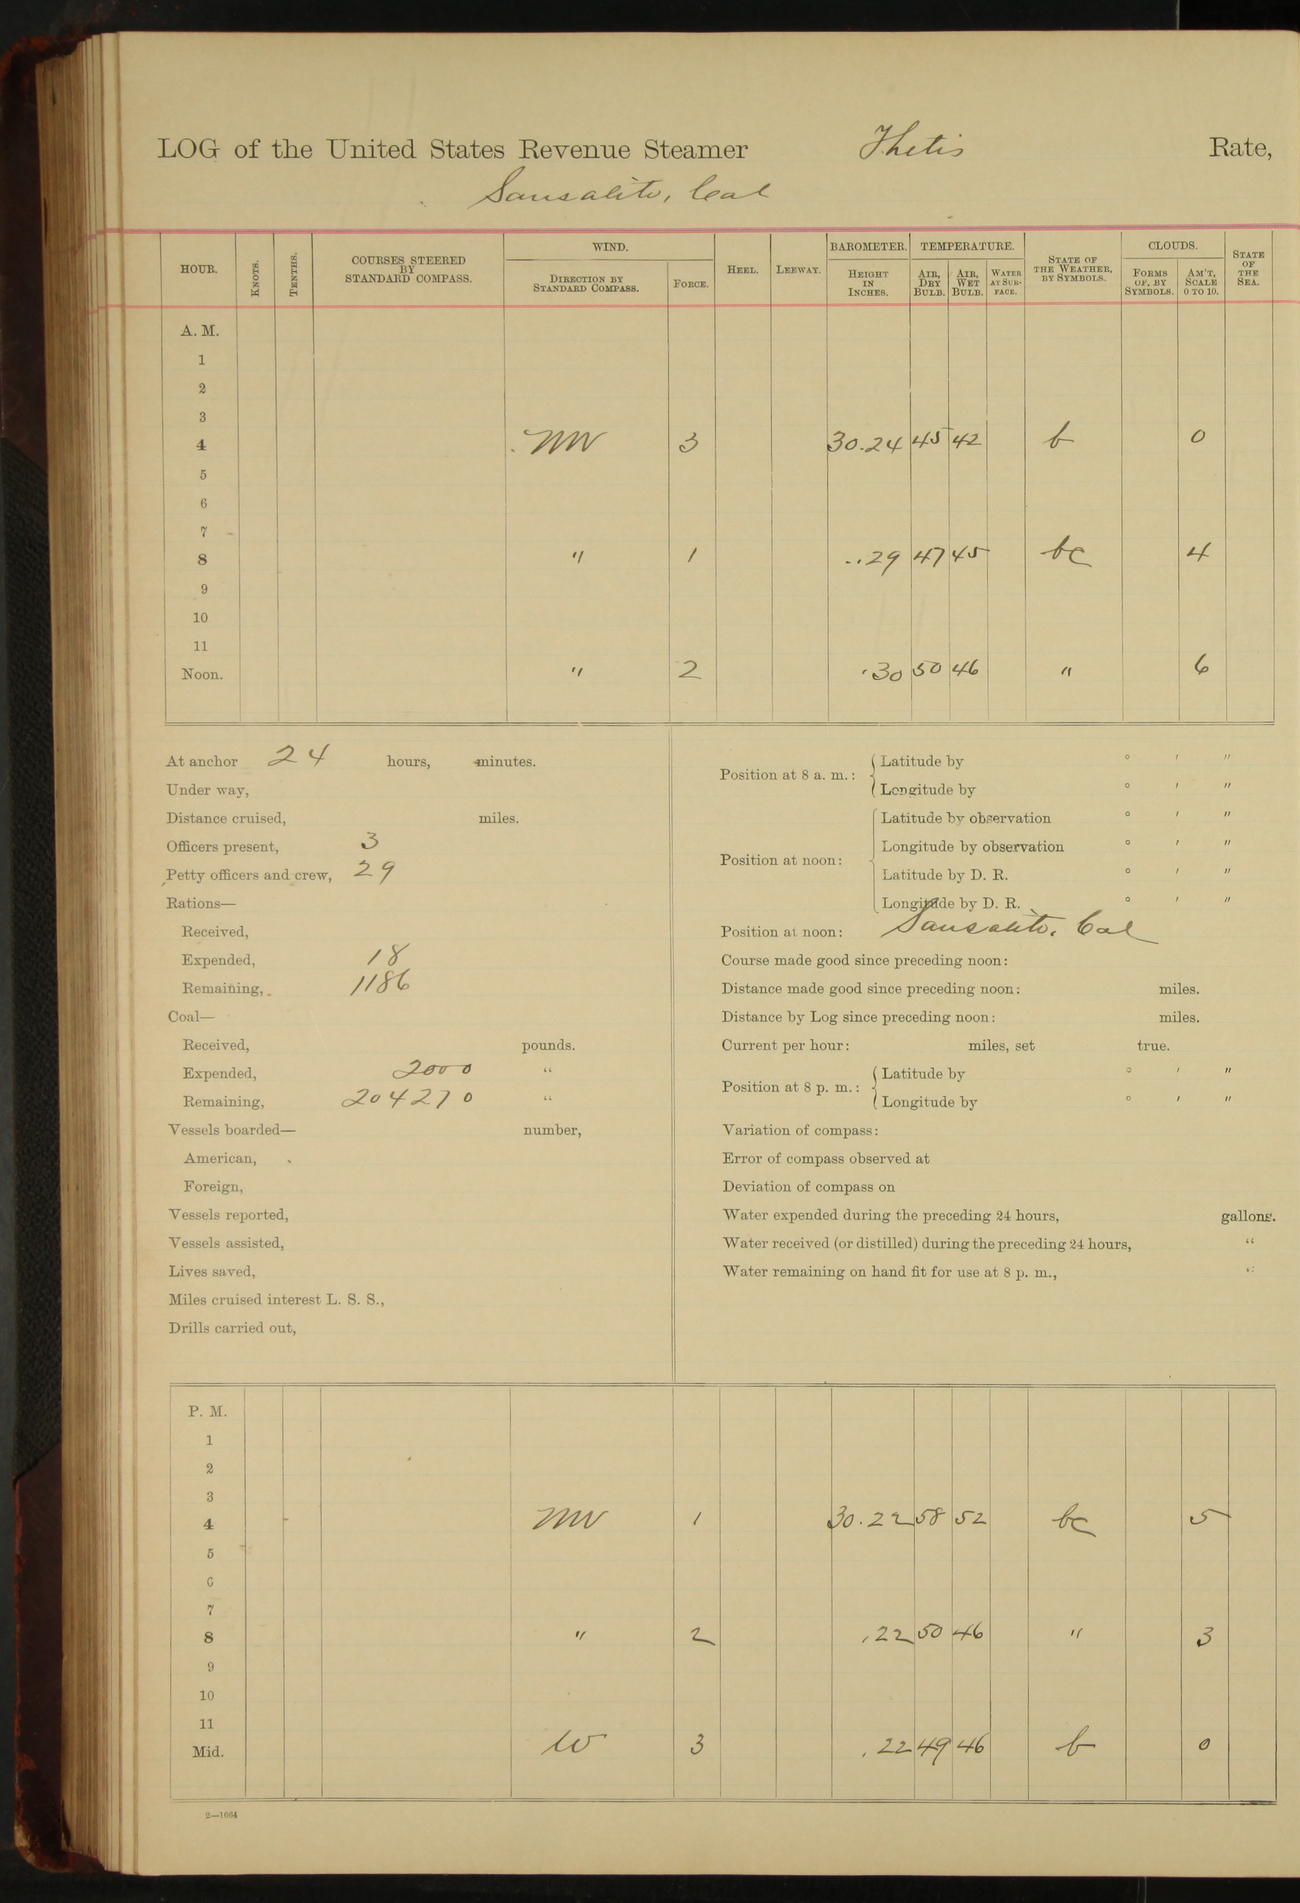 LOG of the United States Revenue Steamer Thetis Rate,
Sausalito, Cal
HOUR. KNOTS. TENTHS. COURSES STEERED BY STANDARD COMPASS. WIND. DIRECTION BY STANDARD COMPASS. FORCE. HEEL. LEEWAY. BAROMETER. HEIGHT IN INCHES. TEMPERATURE. AIR, DRY BULB. AIR, WET BULB. WATER AT SURFACE. STATE OF THE WEATHER, BY SYMBOLS. CLOUDS. FORMS OF, BY SYMBOLS. AM'T, SCALE 0 TO 10. STATE OF THE SEA.
A. M.
1
2
3
4 NW 3 30.24 45 42 b 0
5
6
7
8 " 1 ..29 47 45 bc 4
9
10
11
Noon. " 2 .30 50 46 " 6
At anchor 24 hours, minutes.
Under way,
Distance cruised, miles.
Officers present, 3
Petty officers and crew, 29
Rations—
Received,
Expended, 18
Remaining, 1186
Coal—
Received, pounds.
Expended, 2000 "
Remaining, 204270 "
Vessels boarded— number,
American,
Foreign,
Vessels reported,
Vessels assisted,
Lives saved,
Miles cruised interest L. S. S.,
Drills carried out,
Position at 8 a. m.:
Latitude by ° ′ ″
Longitude by ° ′ ″
Position at noon:
Latitude by observation ° ′ ″
Longitude by observation ° ′ ″
Latitude by D. R. ° ′ ″
Longitude by D. R. ° ′ ″
Position at noon: Sausalito, Cal
Course made good since preceding noon:
Distance made good since preceding noon: miles.
Distance by Log since preceding noon: miles.
Current per hour: miles, set true.
Position at 8 p. m.:
Latitude by ° ′ ″
Longitude by ° ′ ″
Variation of compass:
Error of compass observed at
Deviation of compass on
Water expended during the preceding 24 hours, gallons.
Water received (or distilled) during the preceding 24 hours, "
Water remaining on hand fit for use at 8 p. m., "
P. M.
1
2
3
4 NW 1 30.22 58 52 bc 5
5
6
7
8 " 2 .22 50 46 " 3
9
10
11
Mid. W 3 .22 49 46 b 0
2—1064